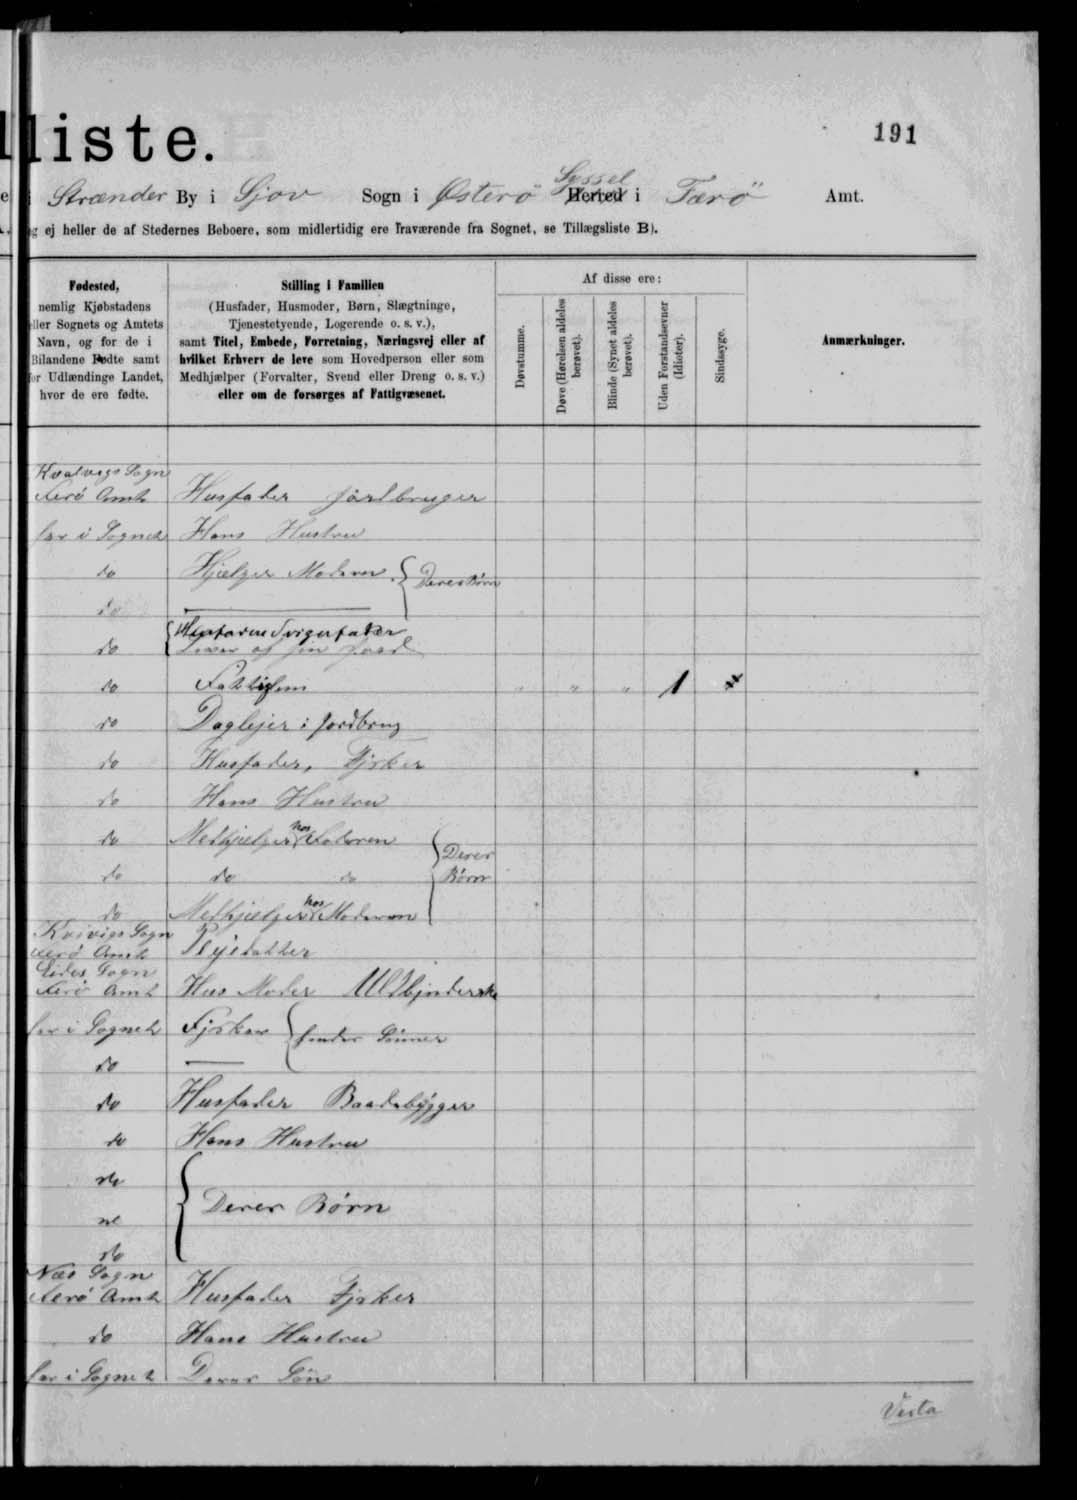 liste.
191
i Strænder By i Sjov Sogn i Østerø Syssel Herred i Færö Amt.
ej heller de af Stedernes Beboere, som midlertidig ere fraværende fra Sognet, se Tillægsliste B).
Fødested,
nemlig Kjøbstadens
eller Sognets og Amtets
Navn, og for de i
Bilandene Fødte samt
for Udlændinge Landet,
hvor de ere fødte.
Stilling i Familien
(Husfader, Husmoder, Børn, Slægtninge,
Tjenestetyende, Logerende o. s. v.),
samt Titel, Embede, Forretning, Næringsvej eller af
hvilket Erhverv de leve som Hovedperson eller som
Medhjælper (Forvalter, Svend eller Dreng o. s. v.)
eller om de forsørges af Fattigvæsenet.
Af disse ere:
Døvstumme.
Døve (Hørelsen aldeles
berøvet).
Blinde (Synet aldeles
berøvet).
Uden Forstandsevner
(Idioter).
Sindssyge.
Anmærkninger.
Kvalvigs Sogn
Ferö Amt Husfader Jordbruger
her i Sognet Hans Hustru
do Hjælper Moderen Deres Børn
do
Husfaderens Svigerfader
do Lever af sin Jord
do Fattiglem " " " 1
do Daglejer i Jordbrug
do Husfader, Fisker
do Hans Hustru
do Medhjælper hos Faderen
do do do Deres Børn
do Medhjælper hos Moderen
Kvivigs Sogn
Ferö Amt Plejedatter
Eides Sogn
Ferö Amt Hus Moder Uldbinderske
her i Sognet Fisker hendes Sönner
do
do Husfader Baadebygger
do Hans Hustru
do
do Deres Børn
do
Næs Sogn
Ferö Amt Husfader Fisker
do Hans Hustru
her i Sognet Deres Sön
Vesta